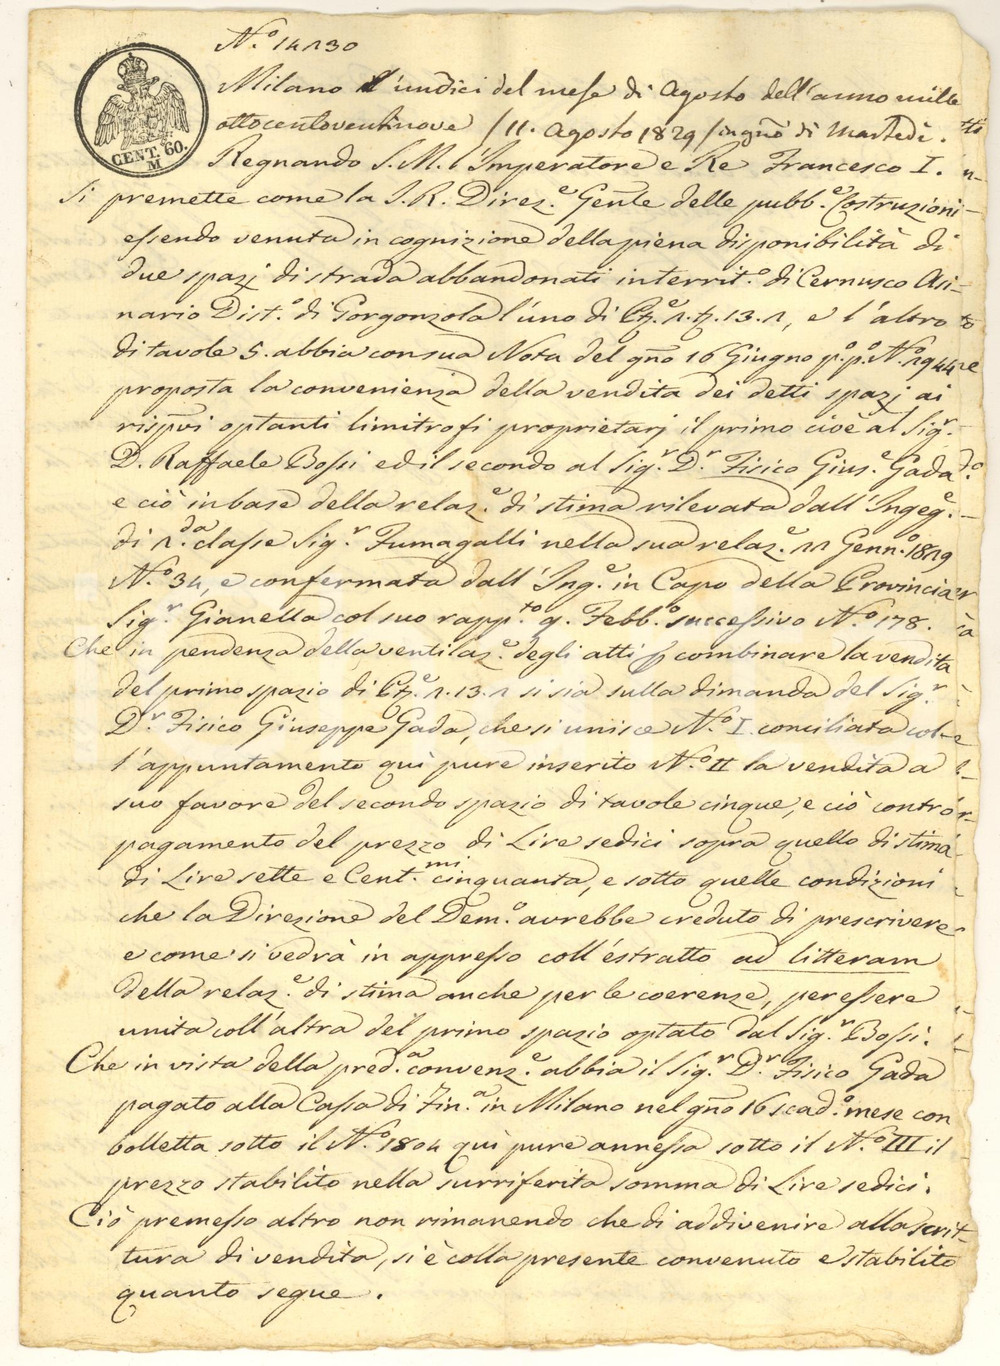 N.º 14130
CENT. 60.
M
Milano l'undici del mese di Agosto dell'anno mille
ottocentoventinove /11. Agosto 1829/ in gño di Martedì.
Regnando S. M. l'Imperatore e Re Francesco I.
Si premette come la I. R. Direz.e Gente delle pubb.e Costruzioni
essendo venuta in cognizione della piena disponibilità di
due spazj di strada abbandonati in territ.o di Cernusco Asi-
nario Dist.o di Gorgonzola l'uno di 1. 13. 1, e l'altro
di tavole 5. abbia con sua Nota del gño 16 Giugno p.o p.o N.o 1944
proposta la convenienza della vendita dei detti spazj ai
rispvi optanti limitrofi proprietarj il primo cioè al Sig.r
D. Raffaele Bossi ed il secondo al Sig.r D.r Fisico Gius.e Gada
e ciò in base della relaz.e di stima rilevata dall'Ingeg.e
di 2.da classe Sig.r Fumagalli nella sua relaz.e 22 Genn.o 1829
N.o 34, e confermata dall'Ing.e in Capo della Provincia
Sig.r Gianella col suo rapp.to 9. Febb.o successivo N.o 178.
Che in pendenza della ventilaz.e degli atti p combinare la vendita
del primo spazio di 1. 13. 1 si sia sulla dimanda del Sig.r
D.r Fisico Giuseppe Gada, che si unisce N.o I. conciliata col-
l'appuntamento quì pure inserito N.o II la vendita a
suo favore del secondo spazio di tavole cinque, e ciò contro
pagamento del prezzo di Lire sedici sopra quello di stima
di Lire sette e Cent.mi cinquanta, e sotto quelle condizioni
che la Direzione del Dem.o avrebbe creduto di prescrivere
e come si vedrà in appresso coll'estratto ad litteram
della relaz.e di stima anche per le coerenze, per essere
unita coll'altra del primo spazio optato dal Sig.r Bossi.
Che in vista della pred.a convenz.e abbia il Sig.r D.r Fisico Gada
pagato alla Cassa di Fin.a in Milano nel gño 16 scad.o mese con
bolletta sotto il N.o 1804 quì pure annessa sotto il N.o III il
prezzo stabilito nella surriferita somma di Lire sedici.
Ciò premesso altro non rimanendo che di addivenire alla scrit-
tura di vendita, si è colla presente convenuto e stabilito
quanto segue.